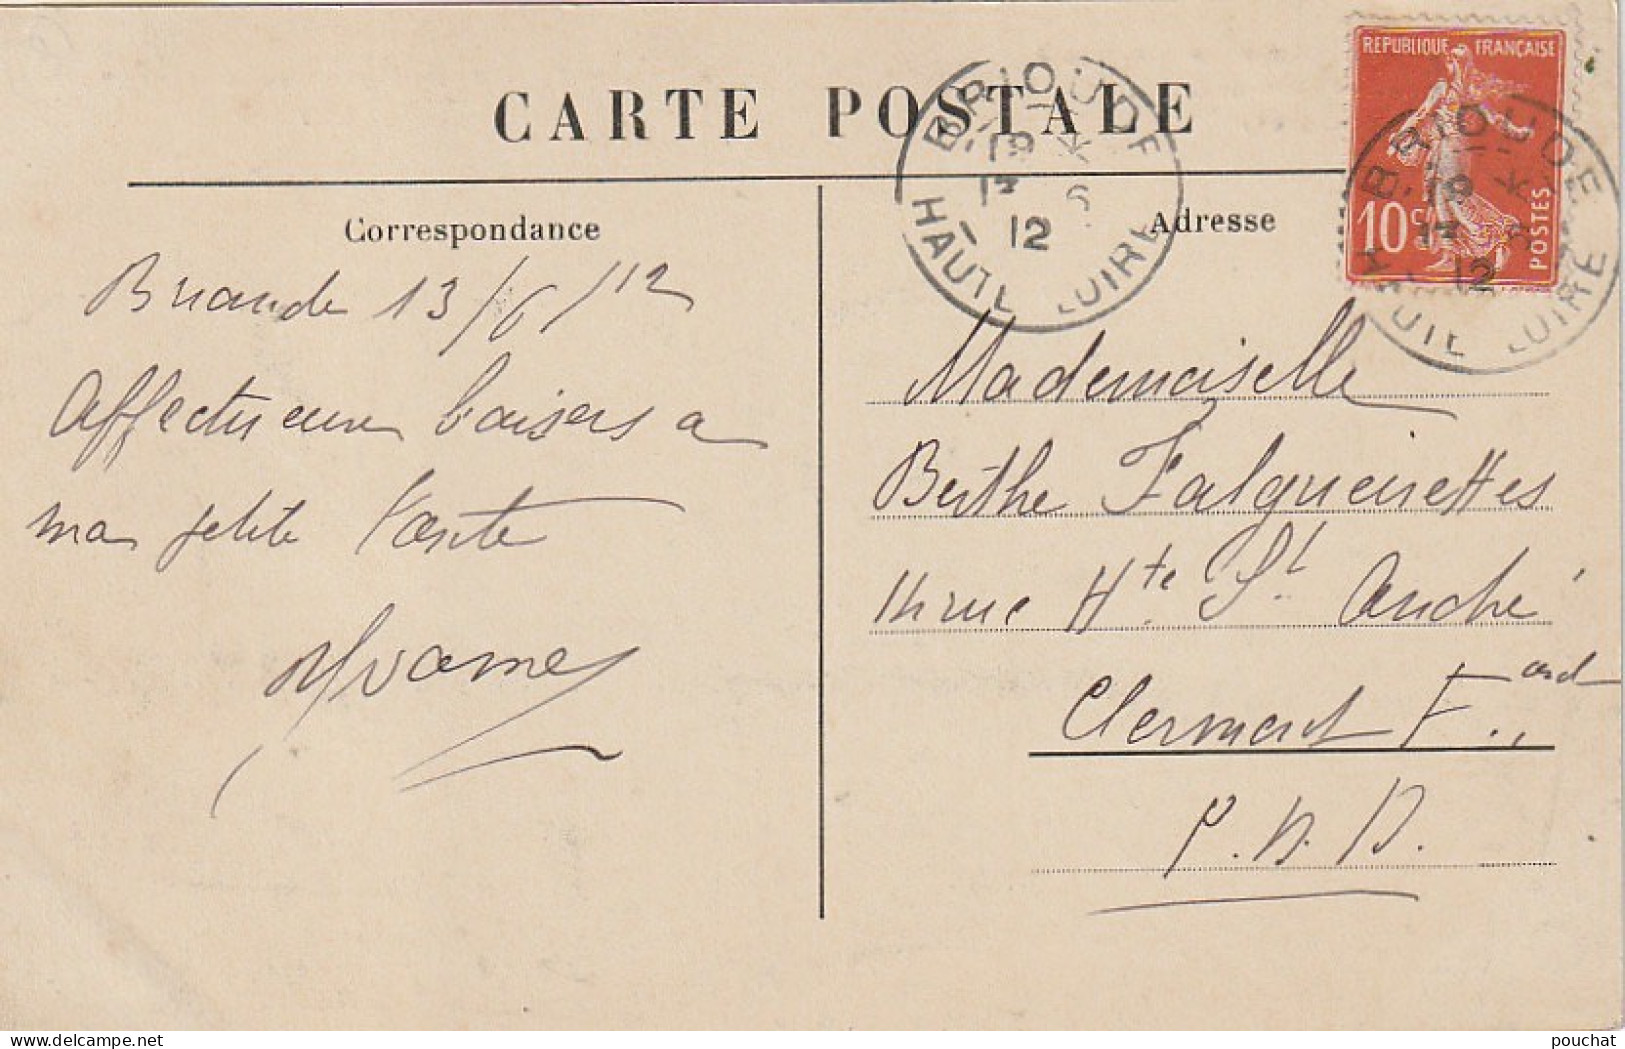 CARTE POSTALE
Correspondance
Adresse
REPUBLIQUE FRANÇAISE
10c
POSTES
BRIOUDE
19 *
13 6
12
HAUTE LOIRE
BRIOUDE
19 *
13 6
12
HAUTE LOIRE
Brioude 13/6/12
Affectueux baisers a
ma petite Tante
Mademoiselle
Berthe Falgueirettes
rue Hte St André
Clermont Fard
P. D. D.
delcampe.net
pouchat